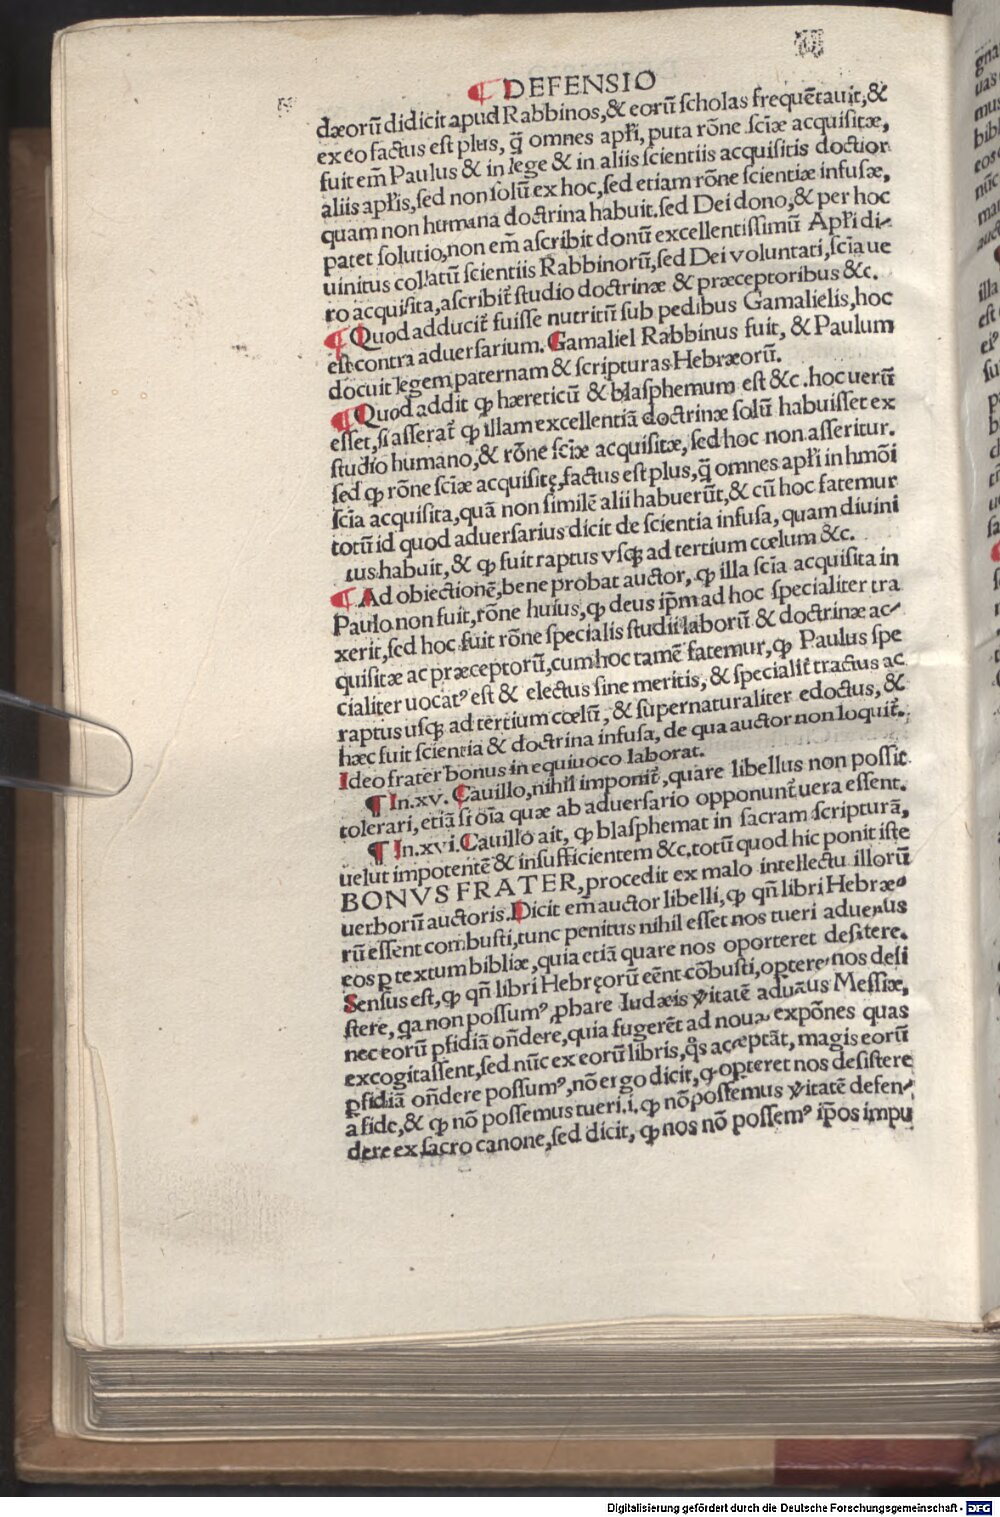 ¶ DEFENSIO
dæorũ didicit apud Rabbinos, & eorũ ſcholas frequẽtauit, &
ex eo factus eſt plus, q̃ omnes apľi, puta rõne ſciæ acquiſitæ,
fuit em̃ Paulus & in lege & in aliis ſcientiis acquiſitis doctior
aliis apľis, ſed non ſolũ ex hoc, ſed etiam rõne ſcientiæ infuſæ,
quam non humana doctrina habuit. ſed Dei dono, & per hoc
patet ſolutio, non em̃ aſcribit donũ excellentiſſimũ Apľi di-
uinitus collatũ ſcientiis Rabbinorũ, ſed Dei voluntati, ſcĩa ue
ro acquiſita, aſcribit̃ ſtudio doctrinæ & præceptoribus &c.
¶ Quod adducit̃ fuiſſe nutritũ ſub pedibus Gamalielis, hoc
eſt contra aduerſarium. Gamaliel Rabbinus fuit, & Paulum
docuit legem paternam & ſcripturas Hebræorũ.
¶ Quod addit ꝙ hæreticũ & blaſphemum eſt &c. hoc uerũ
eſſet, ſi aſſerat̃ ꝙ illam excellentiã doctrinæ ſolũ habuiſſet ex
ſtudio humano, & rõne ſciæ acquiſitæ, ſed hoc non aſſeritur.
ſed ꝙ rõne ſciæ acquiſitę, factus eſt plus, q̃ omnes apľi in hmõi
ſcĩa acquiſita, quã non ſimilẽ alii habuerũt, & cũ hoc fatemur
totũ id quod aduerſarius dicit de ſcientia infuſa, quam diuini
tus habuit, & ꝙ fuit raptus vſq; ad tertium cœlum &c.
¶ Ad obiectionẽ, bene probat auctor, ꝙ illa ſcĩa acquiſita in
Paulo non fuit, rõne huius, ꝙ deus ip̃m ad hoc ſpecialiter tra
xerit, ſed hoc fuit rõne ſpecialis ſtudii laborũ & doctrinæ ac-
quiſitæ ac præceptorũ, cum hoc tamẽ fatemur, ꝙ Paulus ſpe
cialiter uocatꝰ eſt & electus ſine meritis, & ſpecialit̃ tractus ac
raptus uſq; ad tertium cœlũ, & ſupernaturaliter edoctus, &
hæc fuit ſcientia & doctrina infuſa, de qua auctor non loquit̃.
Ideo frater bonus in equiuoco laborat.
¶ In. xv. Cauillo, nihil imponit̃, quare libellus non poſſit
tolerari, etiã ſi oĩa quæ ab aduerſario opponunt̃ uera eſſent.
¶ In. xvi. Cauillo ait, ꝙ blaſphemat in ſacram ſcripturã,
uelut impotentẽ & inſufficientem &c. totũ quod hic ponit iſte
BONVS FRATER, procedit ex malo intellectu illorũ
uerborũ auctoris. Dicit em̃ auctor libelli, ꝙ qñ libri Hebræo
rũ eſſent combuſti, tunc penitus nihil eſſet nos tueri aduerſus
eos ꝑ textum bibliæ, quia etiã quare nos oporteret deſitere.
Senſus eſt, ꝙ qñ libri Hebręorũ eẽnt cõbuſti, opteret nos deſi
ſtere, qa non poſſumꝰ ꝓbare Iudæis v̾itatẽ aduerſus Meſſiæ,
nec eorũ ꝑfidiã oñdere, quia fugerẽt ad nouas expõnes quas
excogitaſſent, ſed nũc ex eorũ libris, q̃s acceptãt, magis eorũ
ꝑfidiã oñdere poſſumꝰ, nõ ergo dicit, ꝙ opteret nos deſiſtere
a fide, & ꝙ nõ poſſemus tueri. i. ꝙ nõ poſſemus v̾itatẽ defen-
dere ex ſacro canone, ſed dicit, ꝙ nos nõ poſſemꝰ ip̃os impu
Digitalisierung gefördert durch die Deutsche Forschungsgemeinschaft - DFG